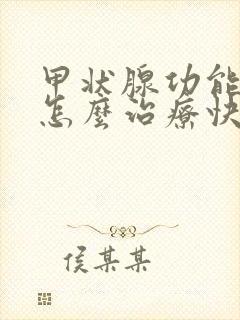 甲状腺功能
怎麼治療快
侯某某